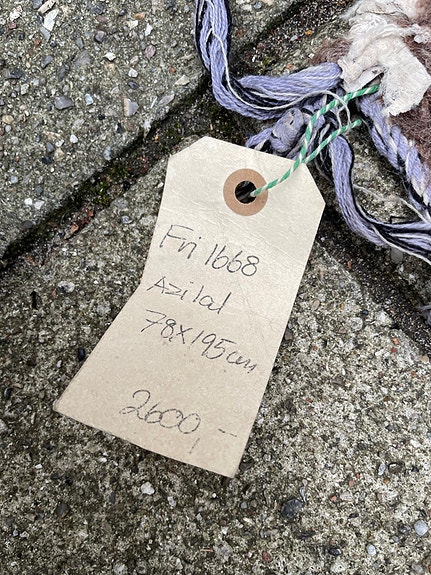 Fri 1668
Azilal
78x195cm
2600,-